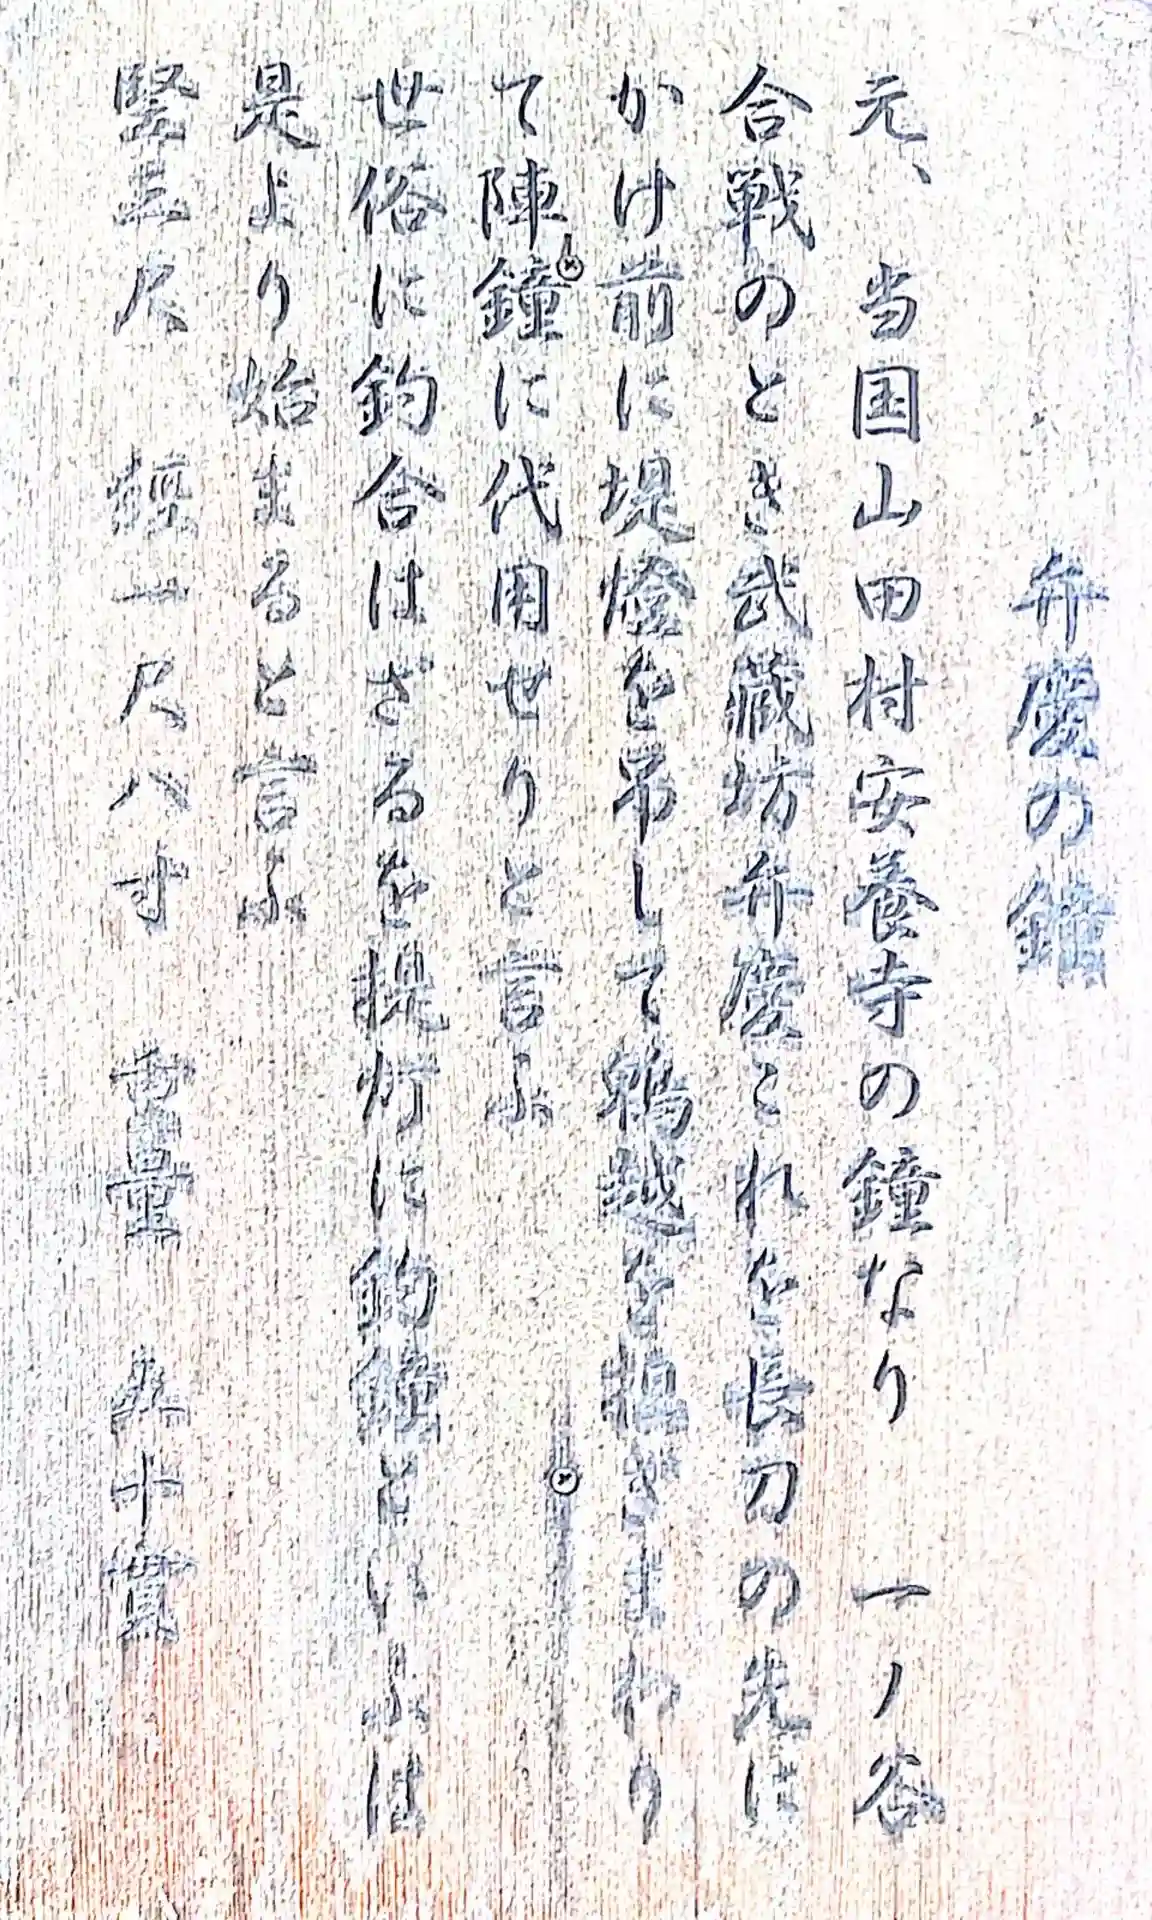 弁慶の鐘
元、当国山田村安養寺の鐘なり 一ノ谷
合戦のとき武蔵坊弁慶これを長刀の先に
かけ前に堤燈を吊して鵯越を担ぎまわり
て陣鐘に代用せりと言ふ
世俗に釣合はざるを提灯に釣鐘といふは
是より始まると言ふ
竪三尺 経一尺八寸 重量 九十貫